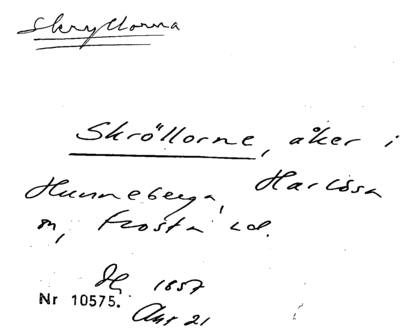 Skryllorna
Skröllorne, åker i
Hunneberga, Harlösa
sn, Frosta hd.
1857
Nr 10575.
Akt 21